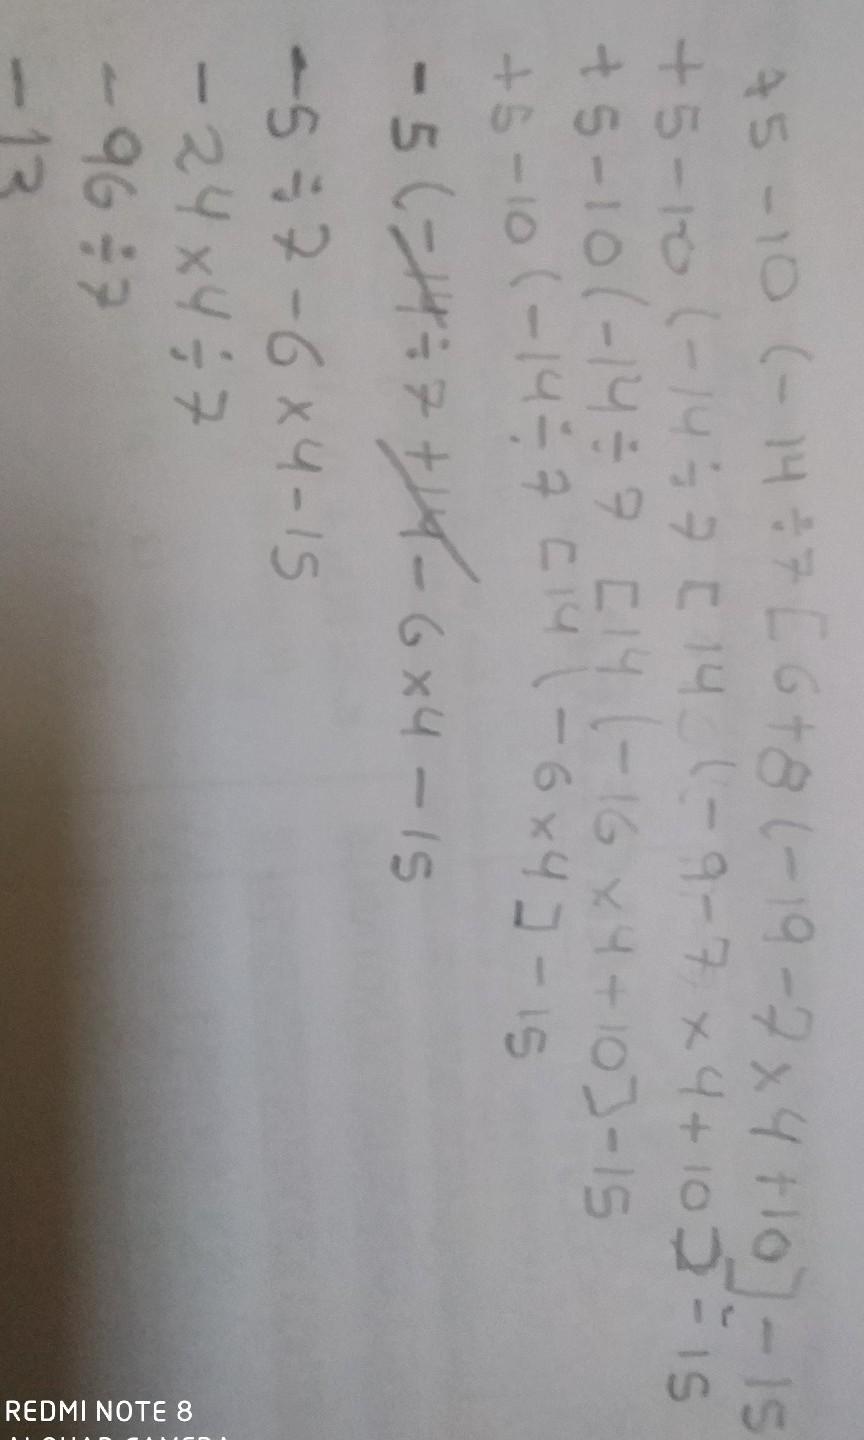 +5-10(-14÷7[6+8(-19-7×4+10]-15
+5-10(-14÷7[14(-9-7×4+10]-15
+5-10(-14÷7[14(-16×4+10]-15
+5-10(-14÷7[14(-6×4]-15
-5(-14÷7+14-6×4-15
-5÷7-6×4-15
-24×4÷7
-96÷7
-13
REDMI NOTE 8